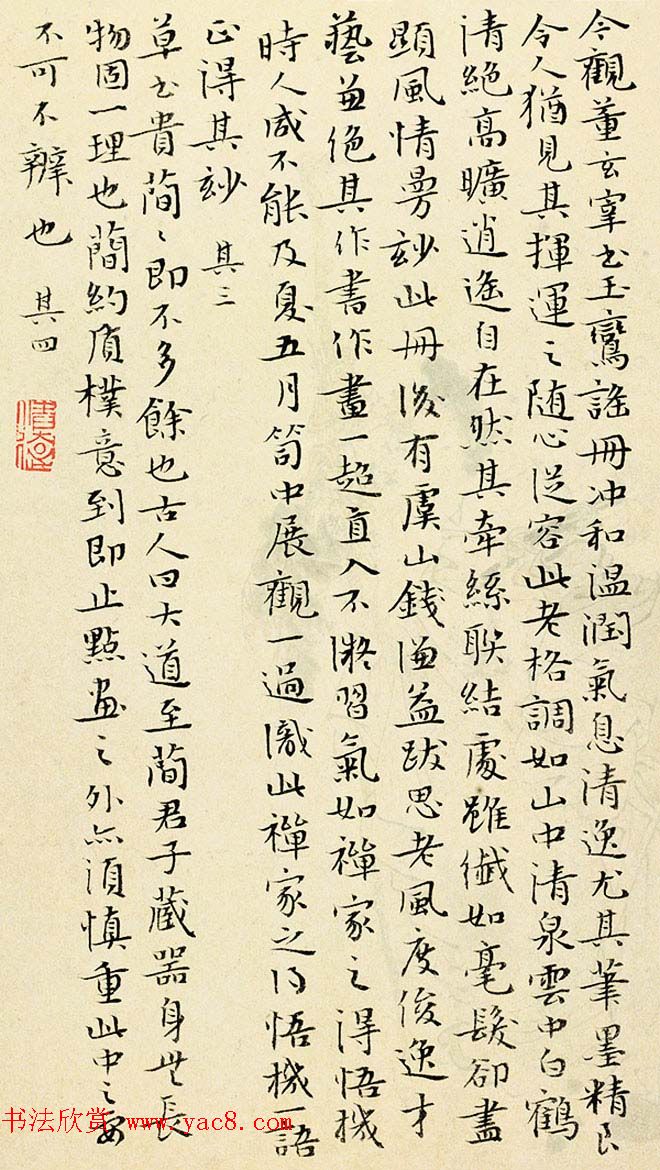 今觀董玄宰书玉鸞謠冊冲和温潤氣息清逸尤其筆墨精良
令人猶見其揮運之随心從容此老格調如山中清泉雲中白鶴
清絶高曠逍遥自在然其牵絲联結處雖纖如毫髮卻盡
顕風情曼玅此冊後有虞山錢谦益跋思老風度俊逸才
藝並絶其作書作畫一超直入不 習氣如禅家之得悟機
時人咸不能及夏五月笥中展觀一過識此禅家之得悟機一語
正得其玅 其三
草书貴蕳〻即不多餘也古人曰大道至蕳君子藏器身世長
物固一理也蕳約质樸意到即止點畫之外亦須慎重此中之要
不可不辨也 其四
书法欣赏 www.yac8.com